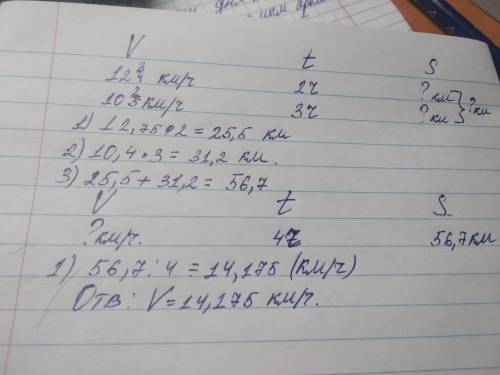 V t S
12 3/4 км/ч 2ч ? км
10 2/5 км/ч 3ч ? км } ? км
1) 12,75 • 2 = 25,5 км
2) 10,4 • 3 = 31,2 км.
3) 25,5 + 31,2 = 56,7
V t S
? км/ч. 4ч 56,7 км
1) 56,7 : 4 = 14,175 (км/ч)
Отв: V = 14,175 км/ч.